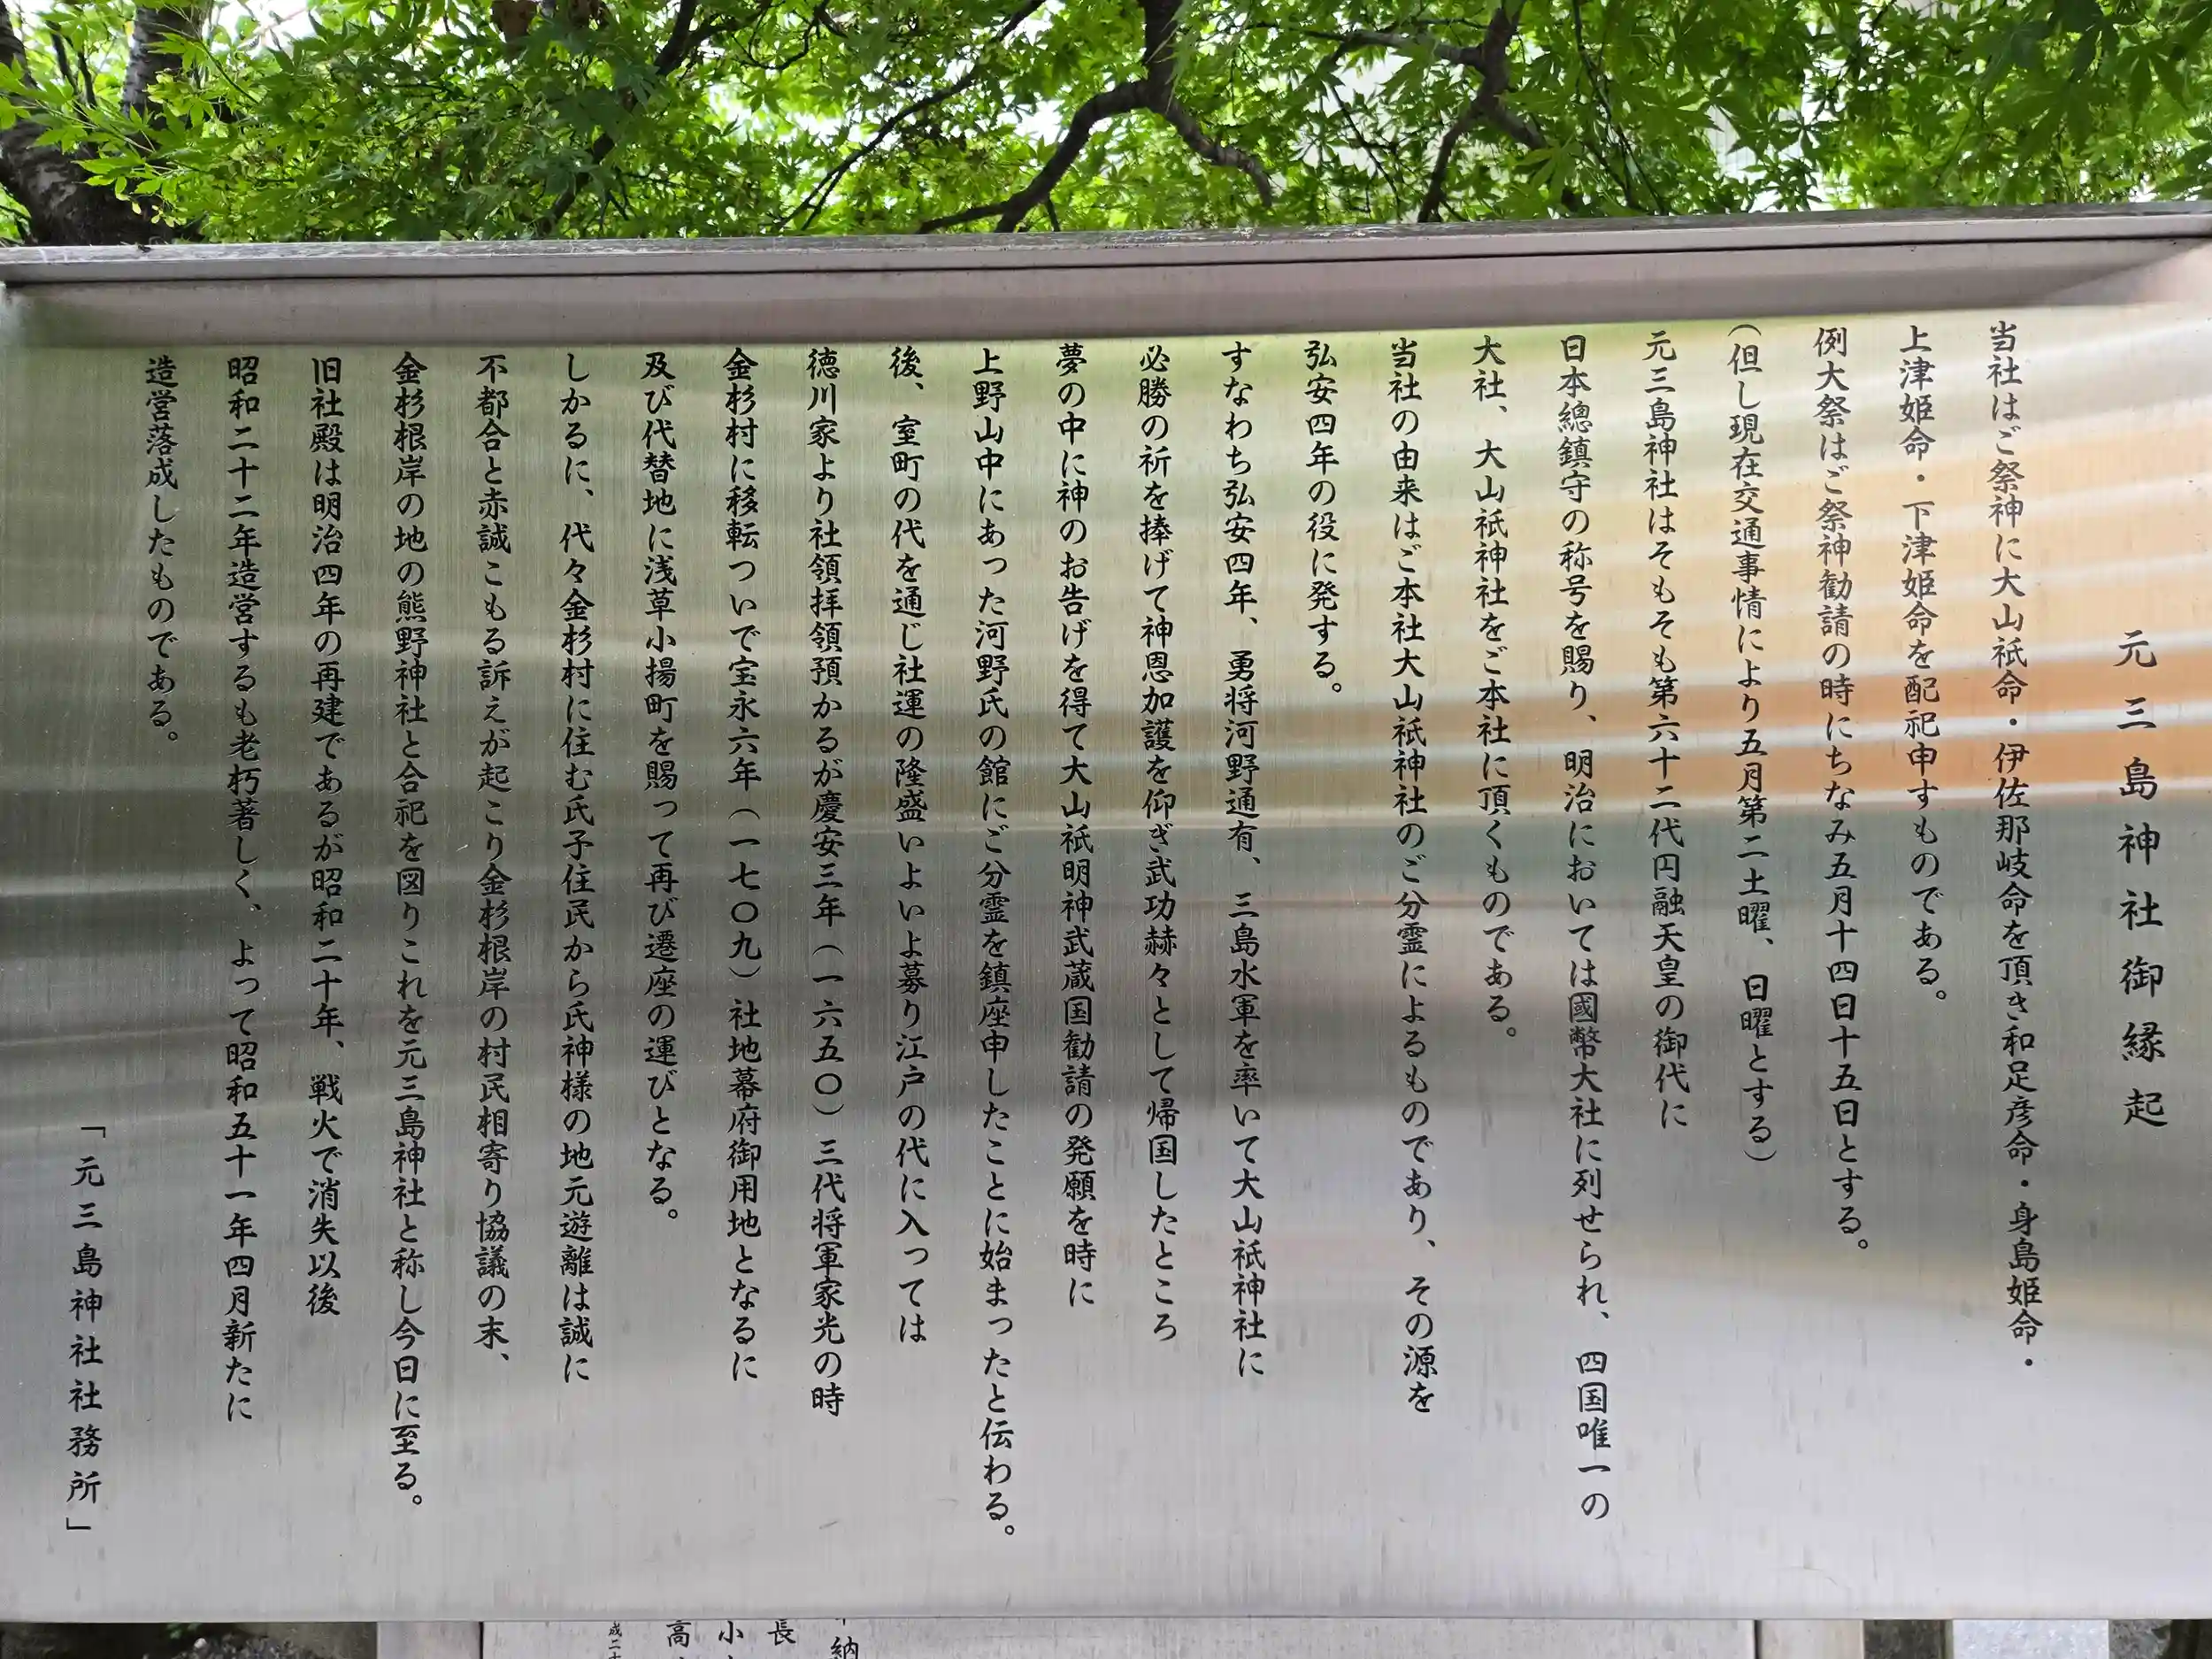 元三島神社御縁起
当社はご祭神に大山祇命・伊佐那岐命を頂き和足彦命・身島姫命・
上津姫命・下津姫命を配祀申すものである。
例大祭はご祭神勧請の時にちなみ五月十四日十五日とする。
（但し現在交通事情により五月第二土曜、日曜とする）
元三島神社はそもそも第六十二代円融天皇の御代に
日本總鎮守の称号を賜り、明治においては國幣大社に列せられ、四国唯一の
大社、大山祇神社をご本社に頂くものである。
当社の由来はご本社大山祇神社のご分霊によるものであり、その源を
弘安四年の役に発する。
すなわち弘安四年、勇将河野通有、三島水軍を率いて大山祇神社に
必勝の祈を捧げて神恩加護を仰ぎ武功赫々として帰国したところ
夢の中に神のお告げを得て大山祇明神武蔵国勧請の発願を時に
上野山中にあった河野氏の館にご分霊を鎮座申したことに始まったと伝わる。
後、室町の代を通じ社運の隆盛いよいよ募り江戸の代に入っては
徳川家より社領拝領預かるが慶安三年（一六五〇）三代将軍家光の時
金杉村に移転ついで宝永六年（一七〇九）社地幕府御用地となるに
及び代替地に浅草小揚町を賜って再び遷座の運びとなる。
しかるに、代々金杉村に住む氏子住民から氏神様の地元遊離は誠に
不都合と赤誠こもる訴えが起こり金杉根岸の村民相寄り協議の末、
金杉根岸の地の熊野神社と合祀を図りこれを元三島神社と称し今日に至る。
旧社殿は明治四年の再建であるが昭和二十年、戦火で消失以後
昭和二十二年造営するも老朽著しく、よって昭和五十一年四月新たに
造営落成したものである。
「元三島神社社務所」
納
長
小
高
成二十